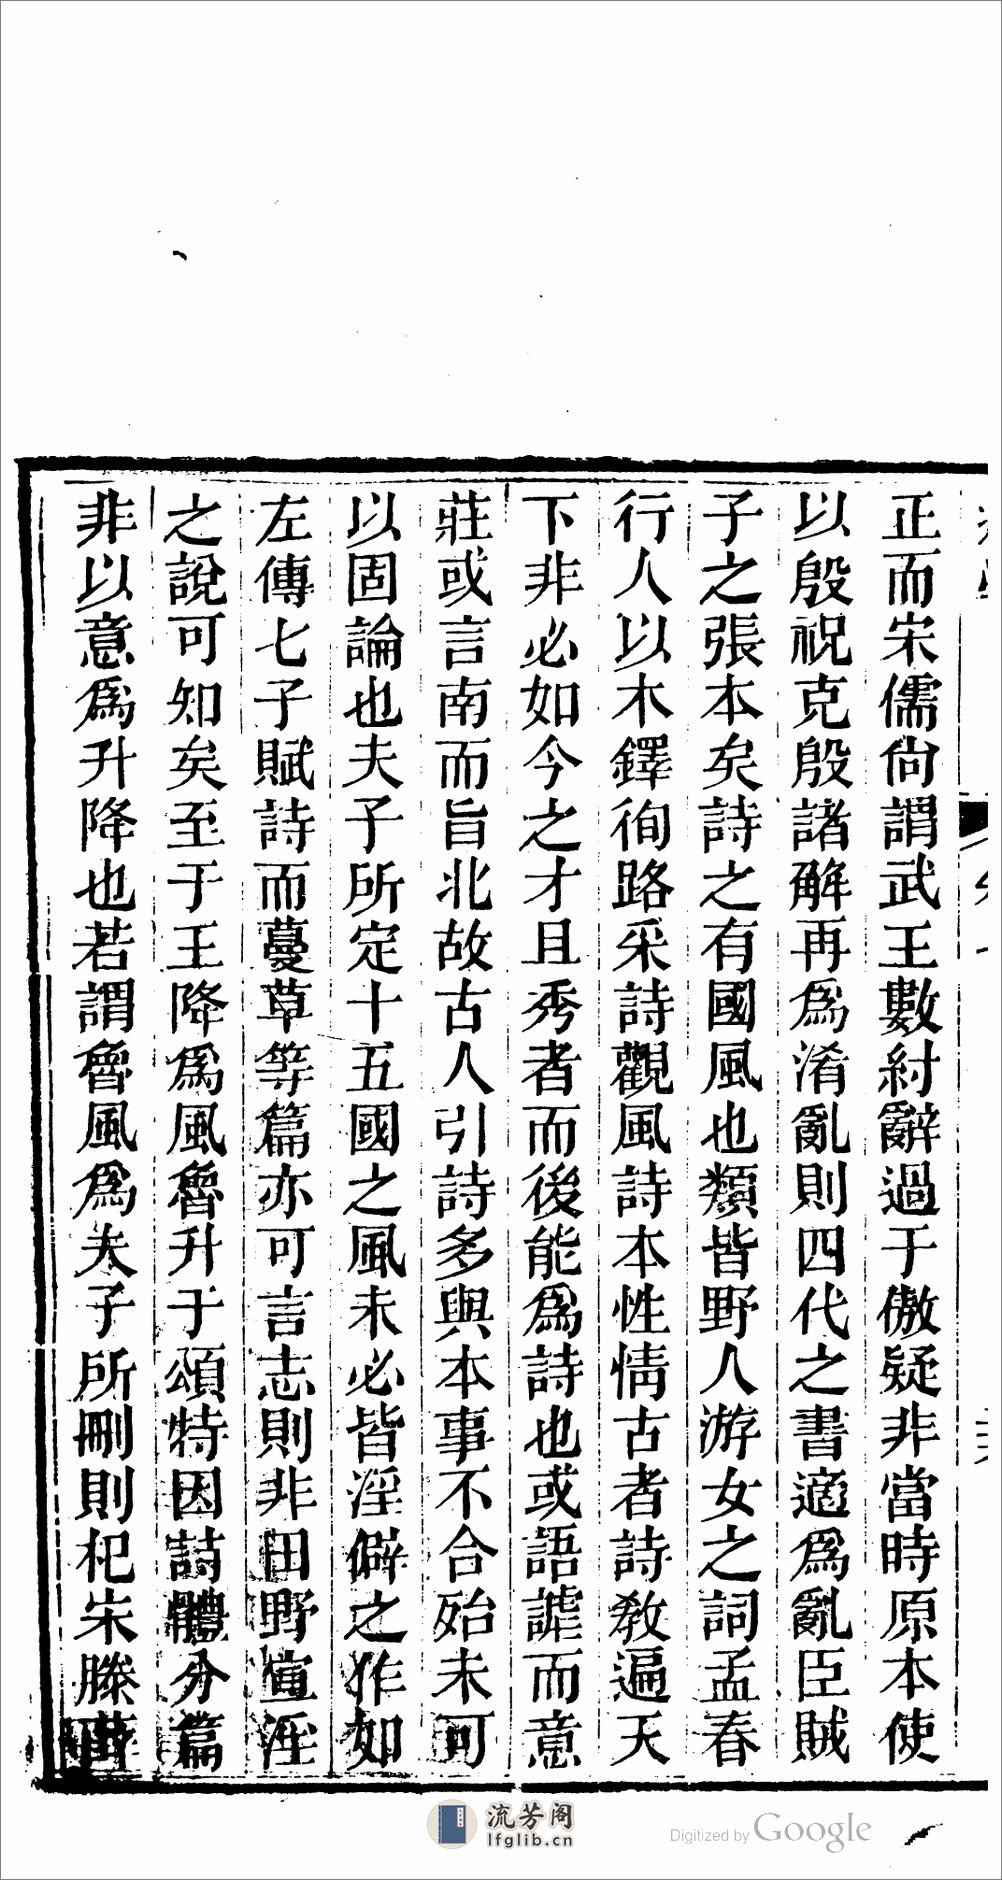 正而宋儒尙謂武王數紂辭過于傲疑非當時原本使
以殷祝克殷諸解再爲淆亂則四代之書適爲亂臣賊
子之張本矣詩之有國風也類皆野人游女之詞孟春
行人以木鐸徇路采詩觀風詩本性情古者詩教遍天
下非必如今之才且秀者而後能爲詩也或語謔而意
莊或言南而旨北故古人引詩多與本事不合殆未可
以固論也夫子所定十五國之風未必皆淫僻之作如
左傳七子賦詩而蔓草等篇亦可言志則非田野宣淫
之說可知矣至于王降爲風魯升于頌特因詩體分篇
非以意爲升降也若謂魯風爲夫子所刪則杞宋滕
流芳阁
lfglib.cn
Digitized by Google